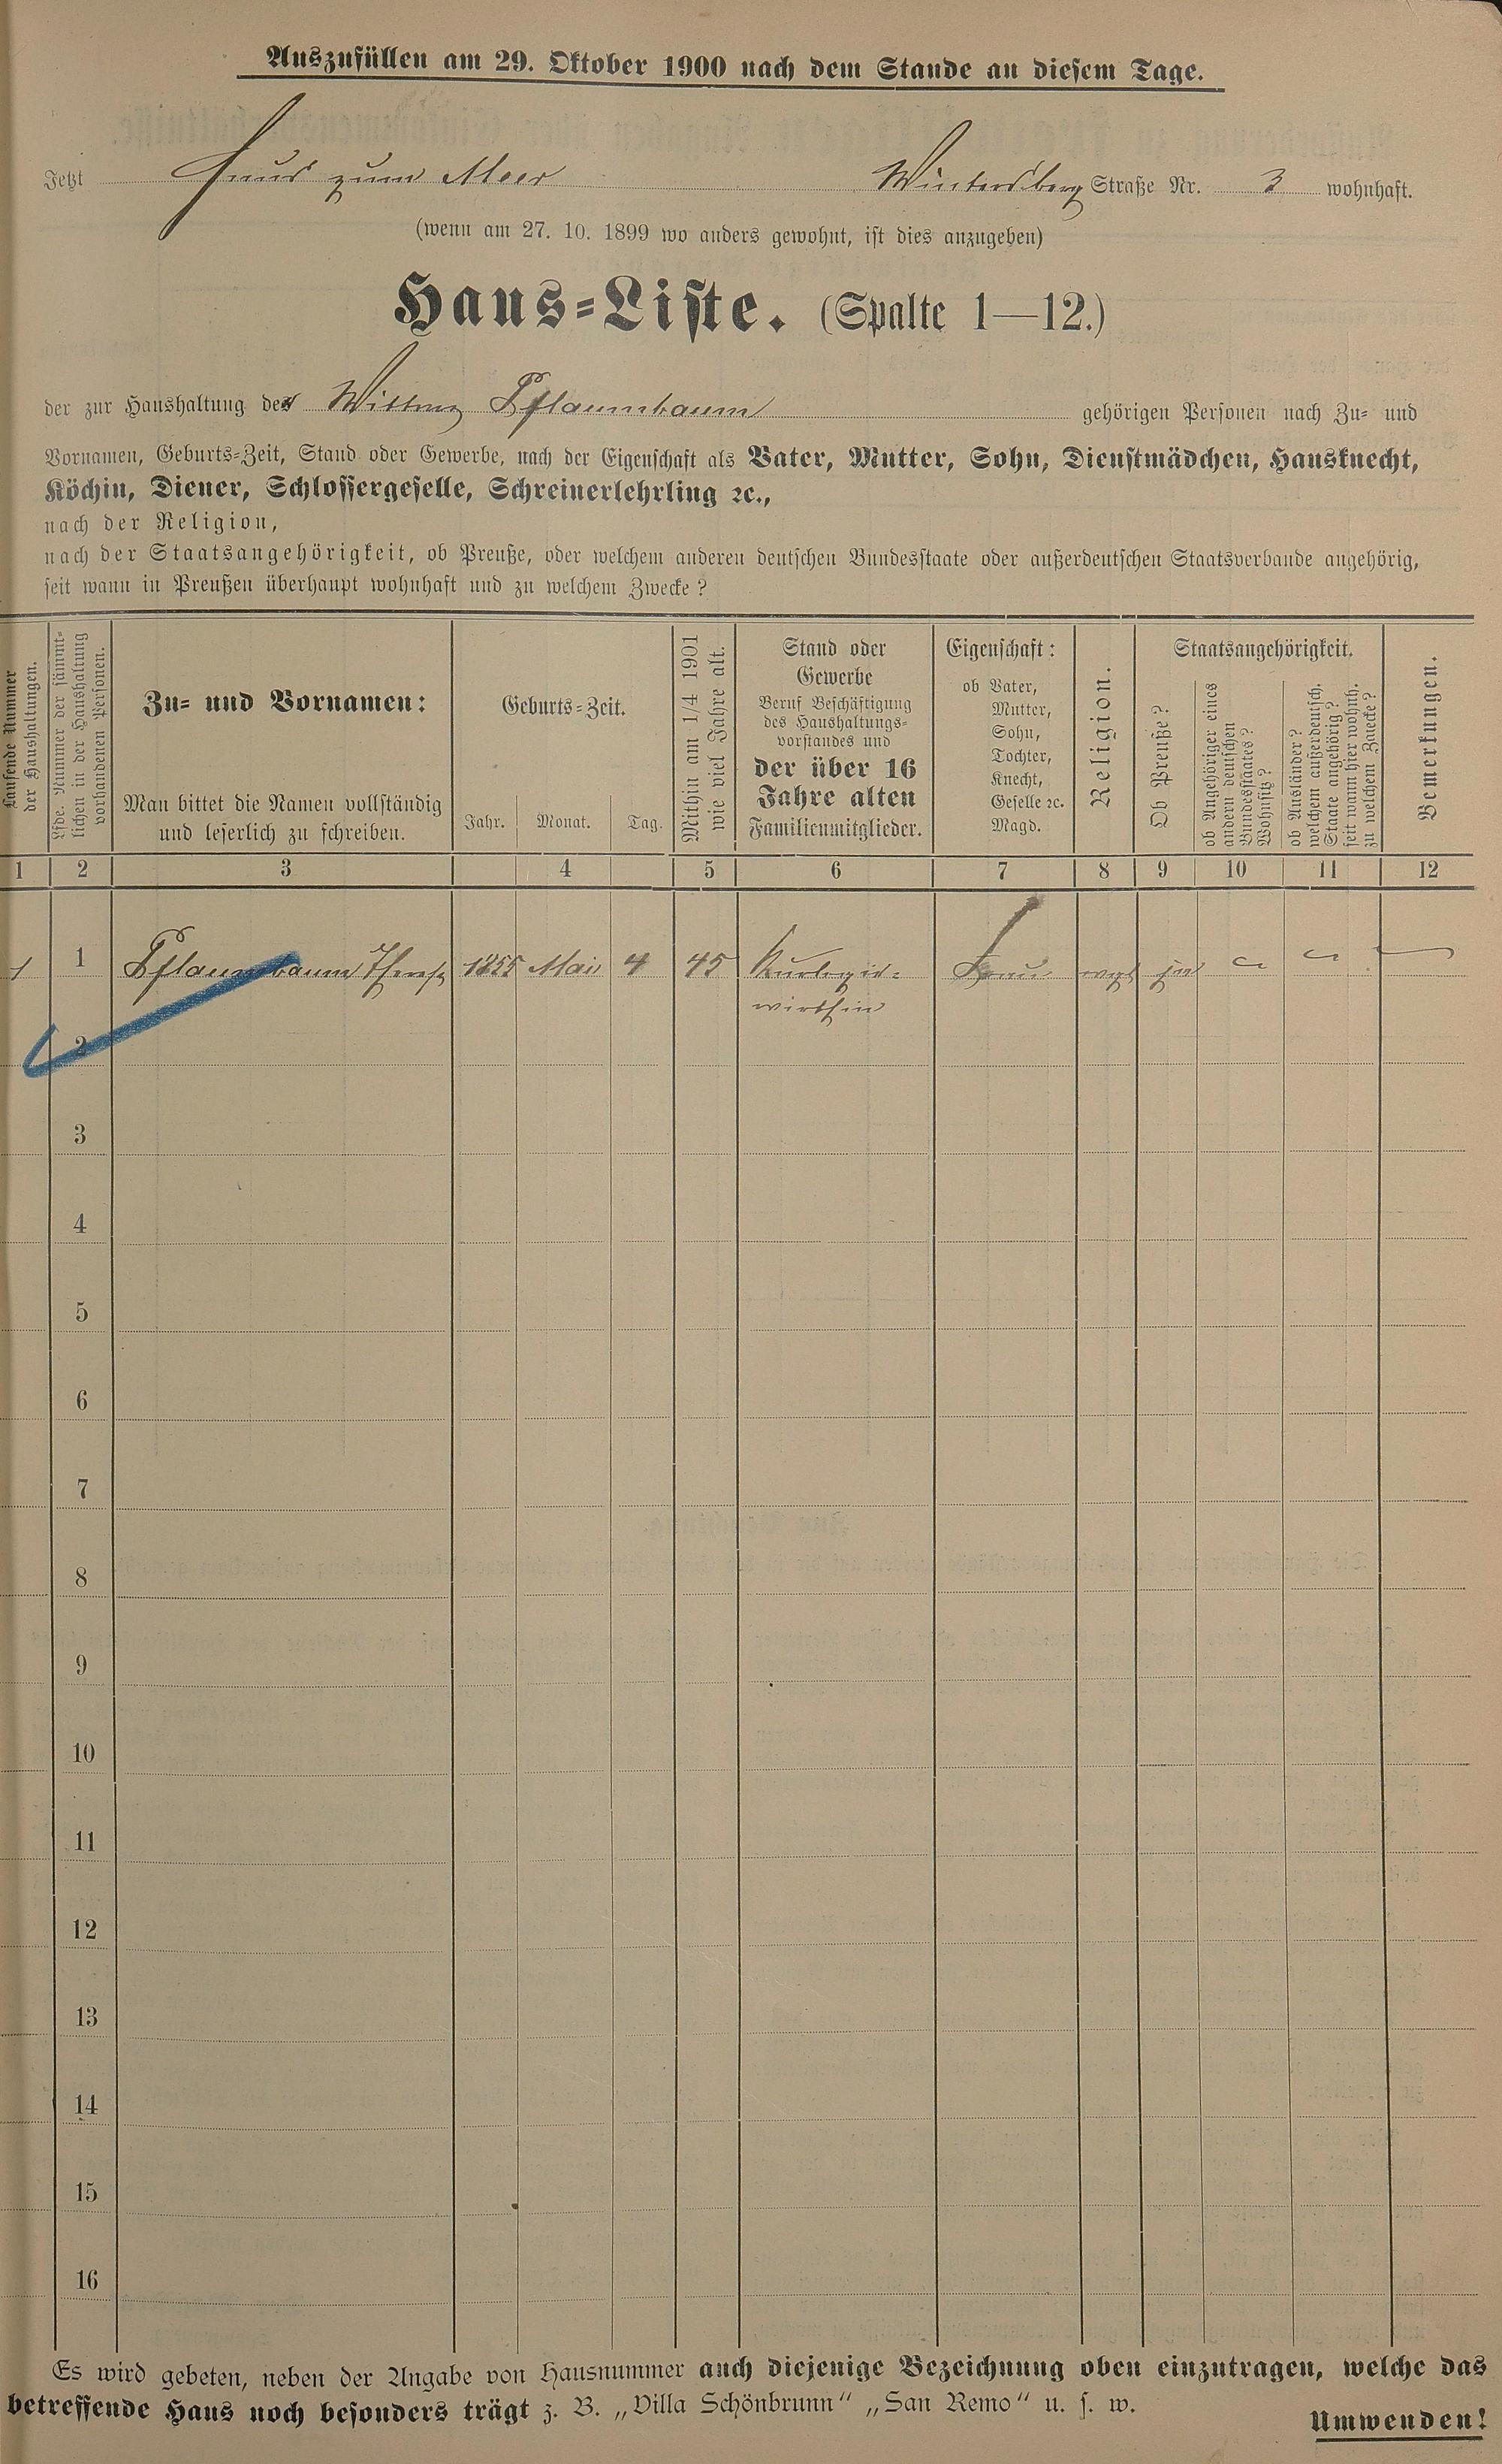 Auszufüllen am 29. Oktober 1900 nach dem Stande an diesem Tage.
Jetzt Haus zum Meer Wintersberg Straße Nr. 3 wohnhaft.
(wenn am 27. 10. 1899 wo anders gewohnt, ist dies anzugeben)
Haus=Liste. (Spalte 1—12.)
der zur Haushaltung der Pflaumbaum gehörigen Personen nach Zu= und
Vornamen, Geburts=Zeit, Stand oder Gewerbe, nach der Eigenschaft als Vater, Mutter, Sohn, Dienstmädchen, Hausknecht,
Köchin, Diener, Schlossergeselle, Schreinerlehrling ꝛc.,
nach der Religion,
nach der Staatsangehörigkeit, ob Preuße, oder welchem anderen deutschen Bundesstaate oder außerdeutschen Staatsverbande angehörig,
seit wann in Preußen überhaupt wohnhaft und zu welchem Zwecke?
Laufende Nummer
der Haushaltungen.
Lfde. Nummer der sämmt=
lichen in der Haushaltung
vorhandenen Personen.
Zu= und Vornamen:
Man bittet die Namen vollständig
und leserlich zu schreiben.
Geburts=Zeit.
Jahr. Monat. Tag.
Mithin am 1/4 1901
wie viel Jahre alt.
Stand oder
Gewerbe
Beruf Beschäftigung
des Haushaltungs=
vorstandes und
der über 16
Jahre alten
Familienmitglieder.
Eigenschaft:
ob Vater,
Mutter,
Sohn,
Tochter,
Knecht,
Geselle ꝛc.
Magd.
Religion.
Staatsangehörigkeit.
Ob Preuße?
ob Angehöriger eines
andern deutschen
Bundesstaates?
Wohnsitz?
ob Ausländer?
welchem außerdeutsch.
Staate angehörig?
seit wann hier wohnh.
zu welchem Zwecke?
Bemerkungen.
1 2 3 4 5 6 7 8 9 10 11 12
1 1 Pflaumbaum 1855 Mai 4 45 Kurlogir= Frau evgl ja
wirthin
2
3
4
5
6
7
8
9
10
11
12
13
14
15
16
Es wird gebeten, neben der Angabe von Hausnummer auch diejenige Bezeichnung oben einzutragen, welche das
betreffende Haus noch besonders trägt z. B. „Villa Schönbrunn“ „San Remo“ u. s. w.
Umwenden!